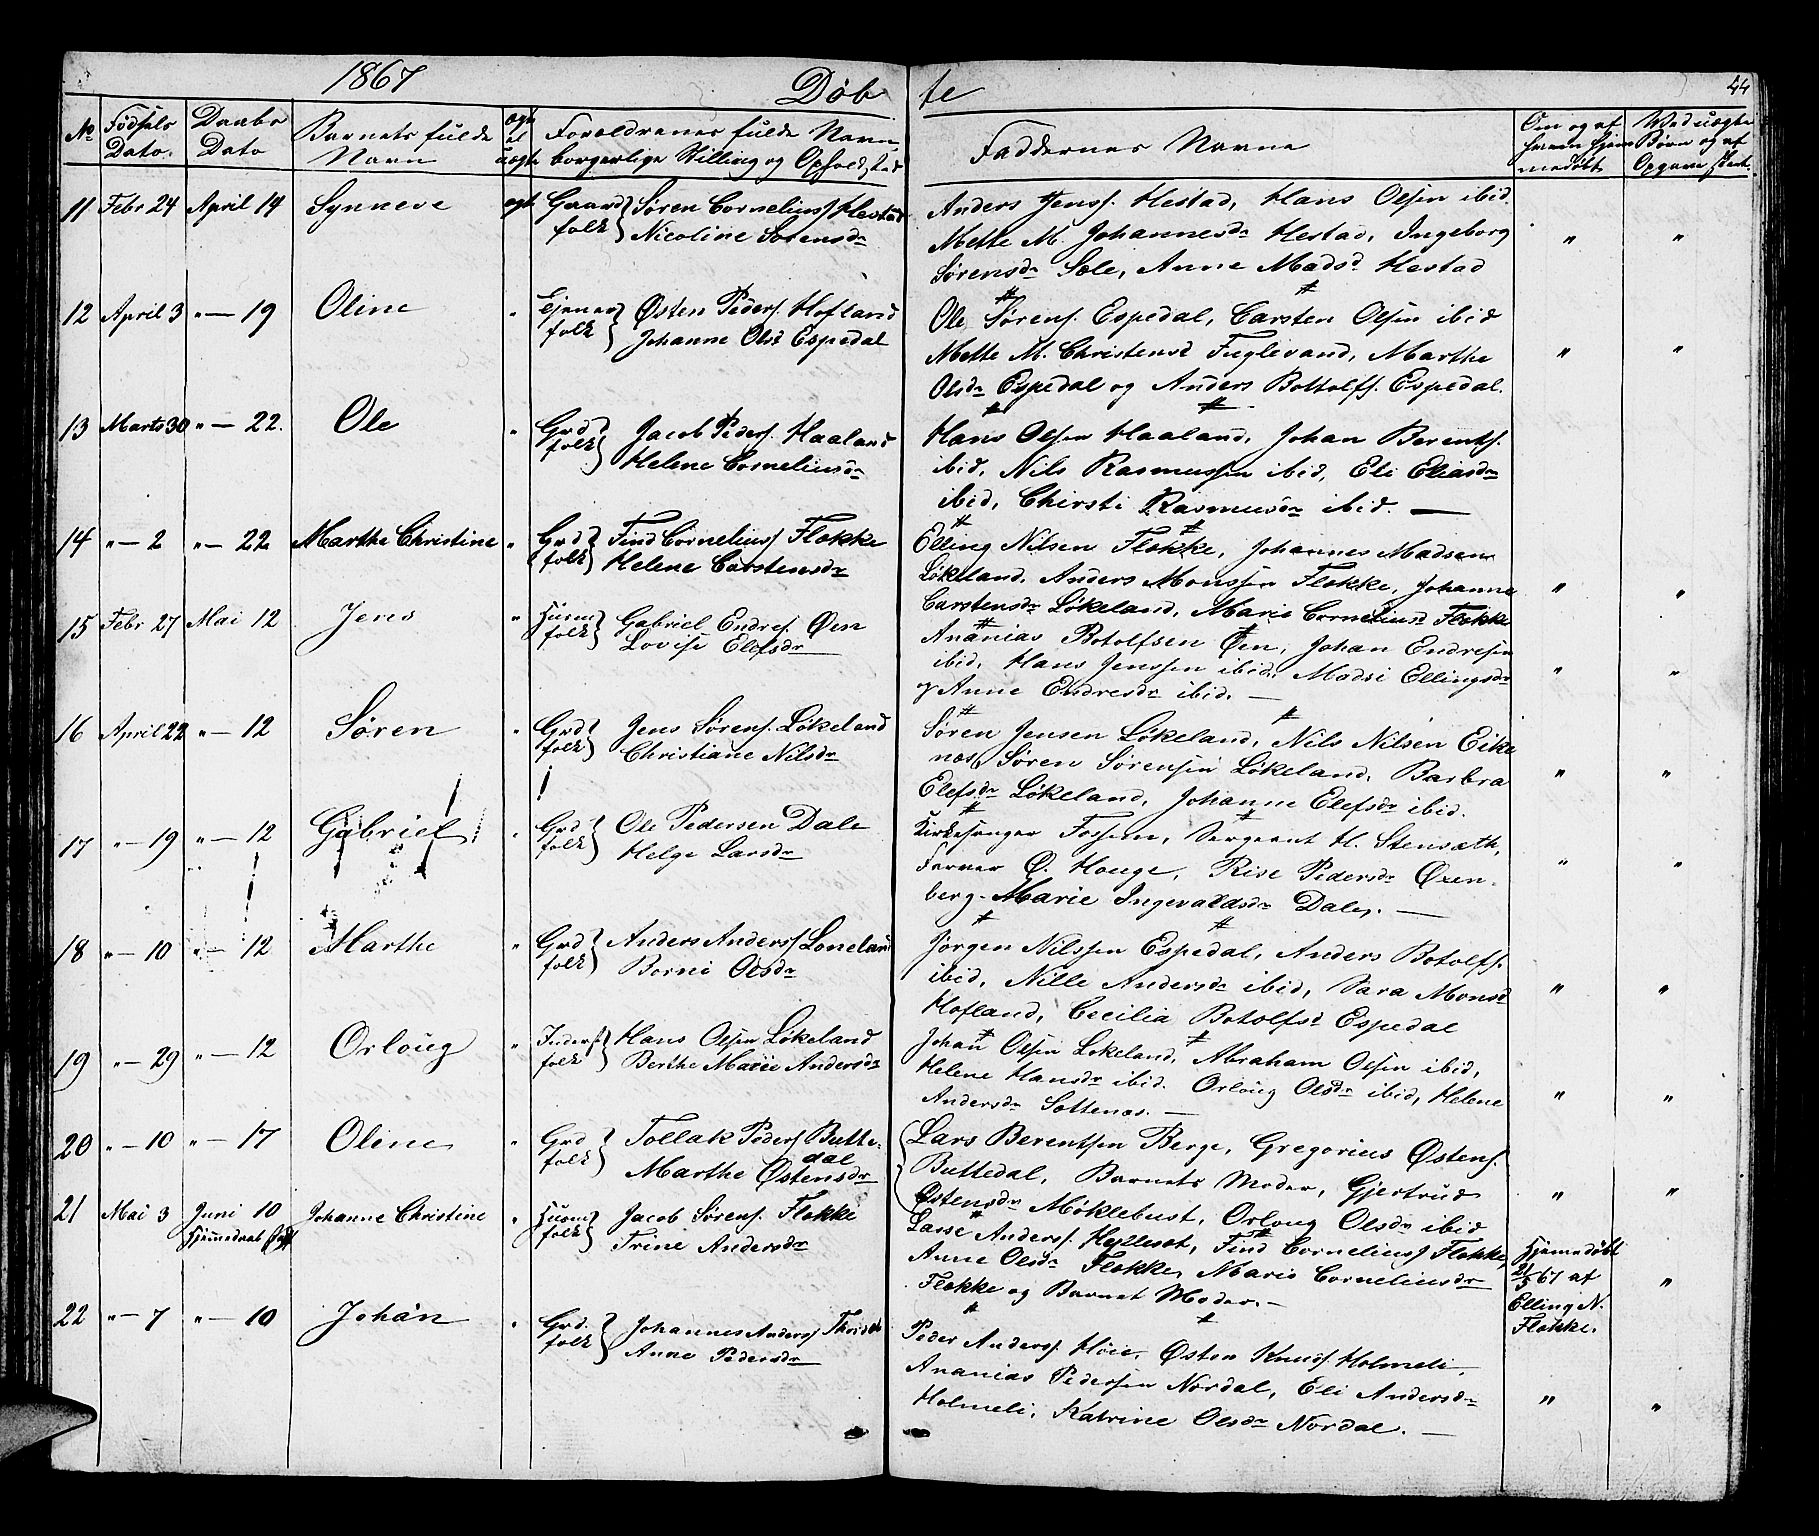 1867 Døbte 44
No Fødsels Dato. Daabs Dato Barnets fulde Navn ægte el uægte Forældrenes fulde Navn borgerlige Stilling og Opholdssted
Faddernes Navne Om og af hvem hjemmedøbt Ved uægte Børn og af Opgave
11 Febr 24 April 14 Synneve ægt Gaard folk Søren Corneliuss Hestad
Nicoline Sørensdr
Anders Jenss. Hestad, Hans Olsen ibid.
Mette M. Johannesdr Hestad, Ingeborg
Sørensdr Sæle, Anne Madsd Hestad
12 April 3 " — 19 Oline " Ejener folk Østen Peders. Hofland
Johanne Olsd Espedal
Ole Sørens. Espedal, Carsten Olsen ibid
Mette M. Christensd Fuglevand, Marthe
Olsdr Espedal og Anders Bottolfs. Espedal.
13 Marts 30 " — 22. Ole " Grd folk Jacob Peders. Haaland
Helene Corneliusdr
Hans Olsen Haaland, Johan Berents.
ibid, Nils Rasmussen ibid, Eli Eliasdr
ibid, Chirsti Rasmusdr ibid. —
14 " — 2 " — 22 Marthe Christine " Grd folk Find Corneliuss Flekke
Helene Carstensdr
Elling Nilsen Flekke, Johannes Madsen
Løkeland, Anders Monssen Flekke, Johanne
Carstensdr Løkeland, Marie Corneliusd Flekke
15 Febr 27 Mai 12 Jens " Husm folk Gabriel Endres. Øen
Lovise Elefsdr
Ananias Botolfsen Øen, Johan Endresen
ibid, Hans Jenssen ibid, Madsi Ellingsdr
og Anne Endresdr ibid. —
16 April 22 " — 12 Søren " Grd folk Jens Sørens. Løkeland
Christiane Nilsdr
Søren Jensen Løkeland, Nils Nilsen Eike
næs, Søren Sørensen Løkeland, Barbra
Elefsdr Løkeland, Johanne Elefsdr ibid.
17 " — 19 " — 12 Gabriel " Grd folk Ole Pedersen Dale
Helge Larsdr
Kirkesanger Fossem, Sergeant H. Stensæth,
Farver Ø. Houge, Rise Pedersdr Øxen-
berg. Marie Ingevaldsdr Dale. —
18 " — 10 " — 12 Marthe " Grd folk Anders Anderss Loneland
Borni Olsdr
Jørgen Nilssen Espedal, Anders Botolfs.
ibid, Nille Andersdr ibid, Sara Monsd
Hofland, Cecilia Botolfsd Espedal
19 " — 29 " — 12 Orloug " folk Hans Olsen Løkeland
Berthe Marie Andersdr
Johan Olsen Løkeland, Abraham Olsen ibid,
Helene Hansdr ibid. Orloug Olsdr ibid, Helene
Andersdr Sottenæs. —
20 " — 10 " — 17 Oline " Grd folk Tollak Peders Butte-
dal
Marthe Østensdr
Lars Berentsen Berge, Gregorius Østens.
Buttedal, Barnets Moder, Gjertrud
Østensdr Møklebust, Orloug Olsdr ibid
21 Mai 3 Juni 10 Johanne Christine " Husm folk Jacob Sørens. Flekke
Trine Andersdr
Lasse Anderss. Hylleset, Find Corneliuss Flekke,
Anne Olsdr Flekke, Marie Corneliusdr
Flekke og Barnet Moder. —
Hjemmedøbt
5/5 67 af
Elling N.
Flekke.
22 " — 7 " — 10 Johan " Grd. folk Johannes Anderss
Anne Pedersdr
Peder Anderss. Høie, Østen Knuds. Holmeli,
Ananias Pedersen Nordal, Eli Andersdr
Holmeli, Katrine Olsdr Nordal. —